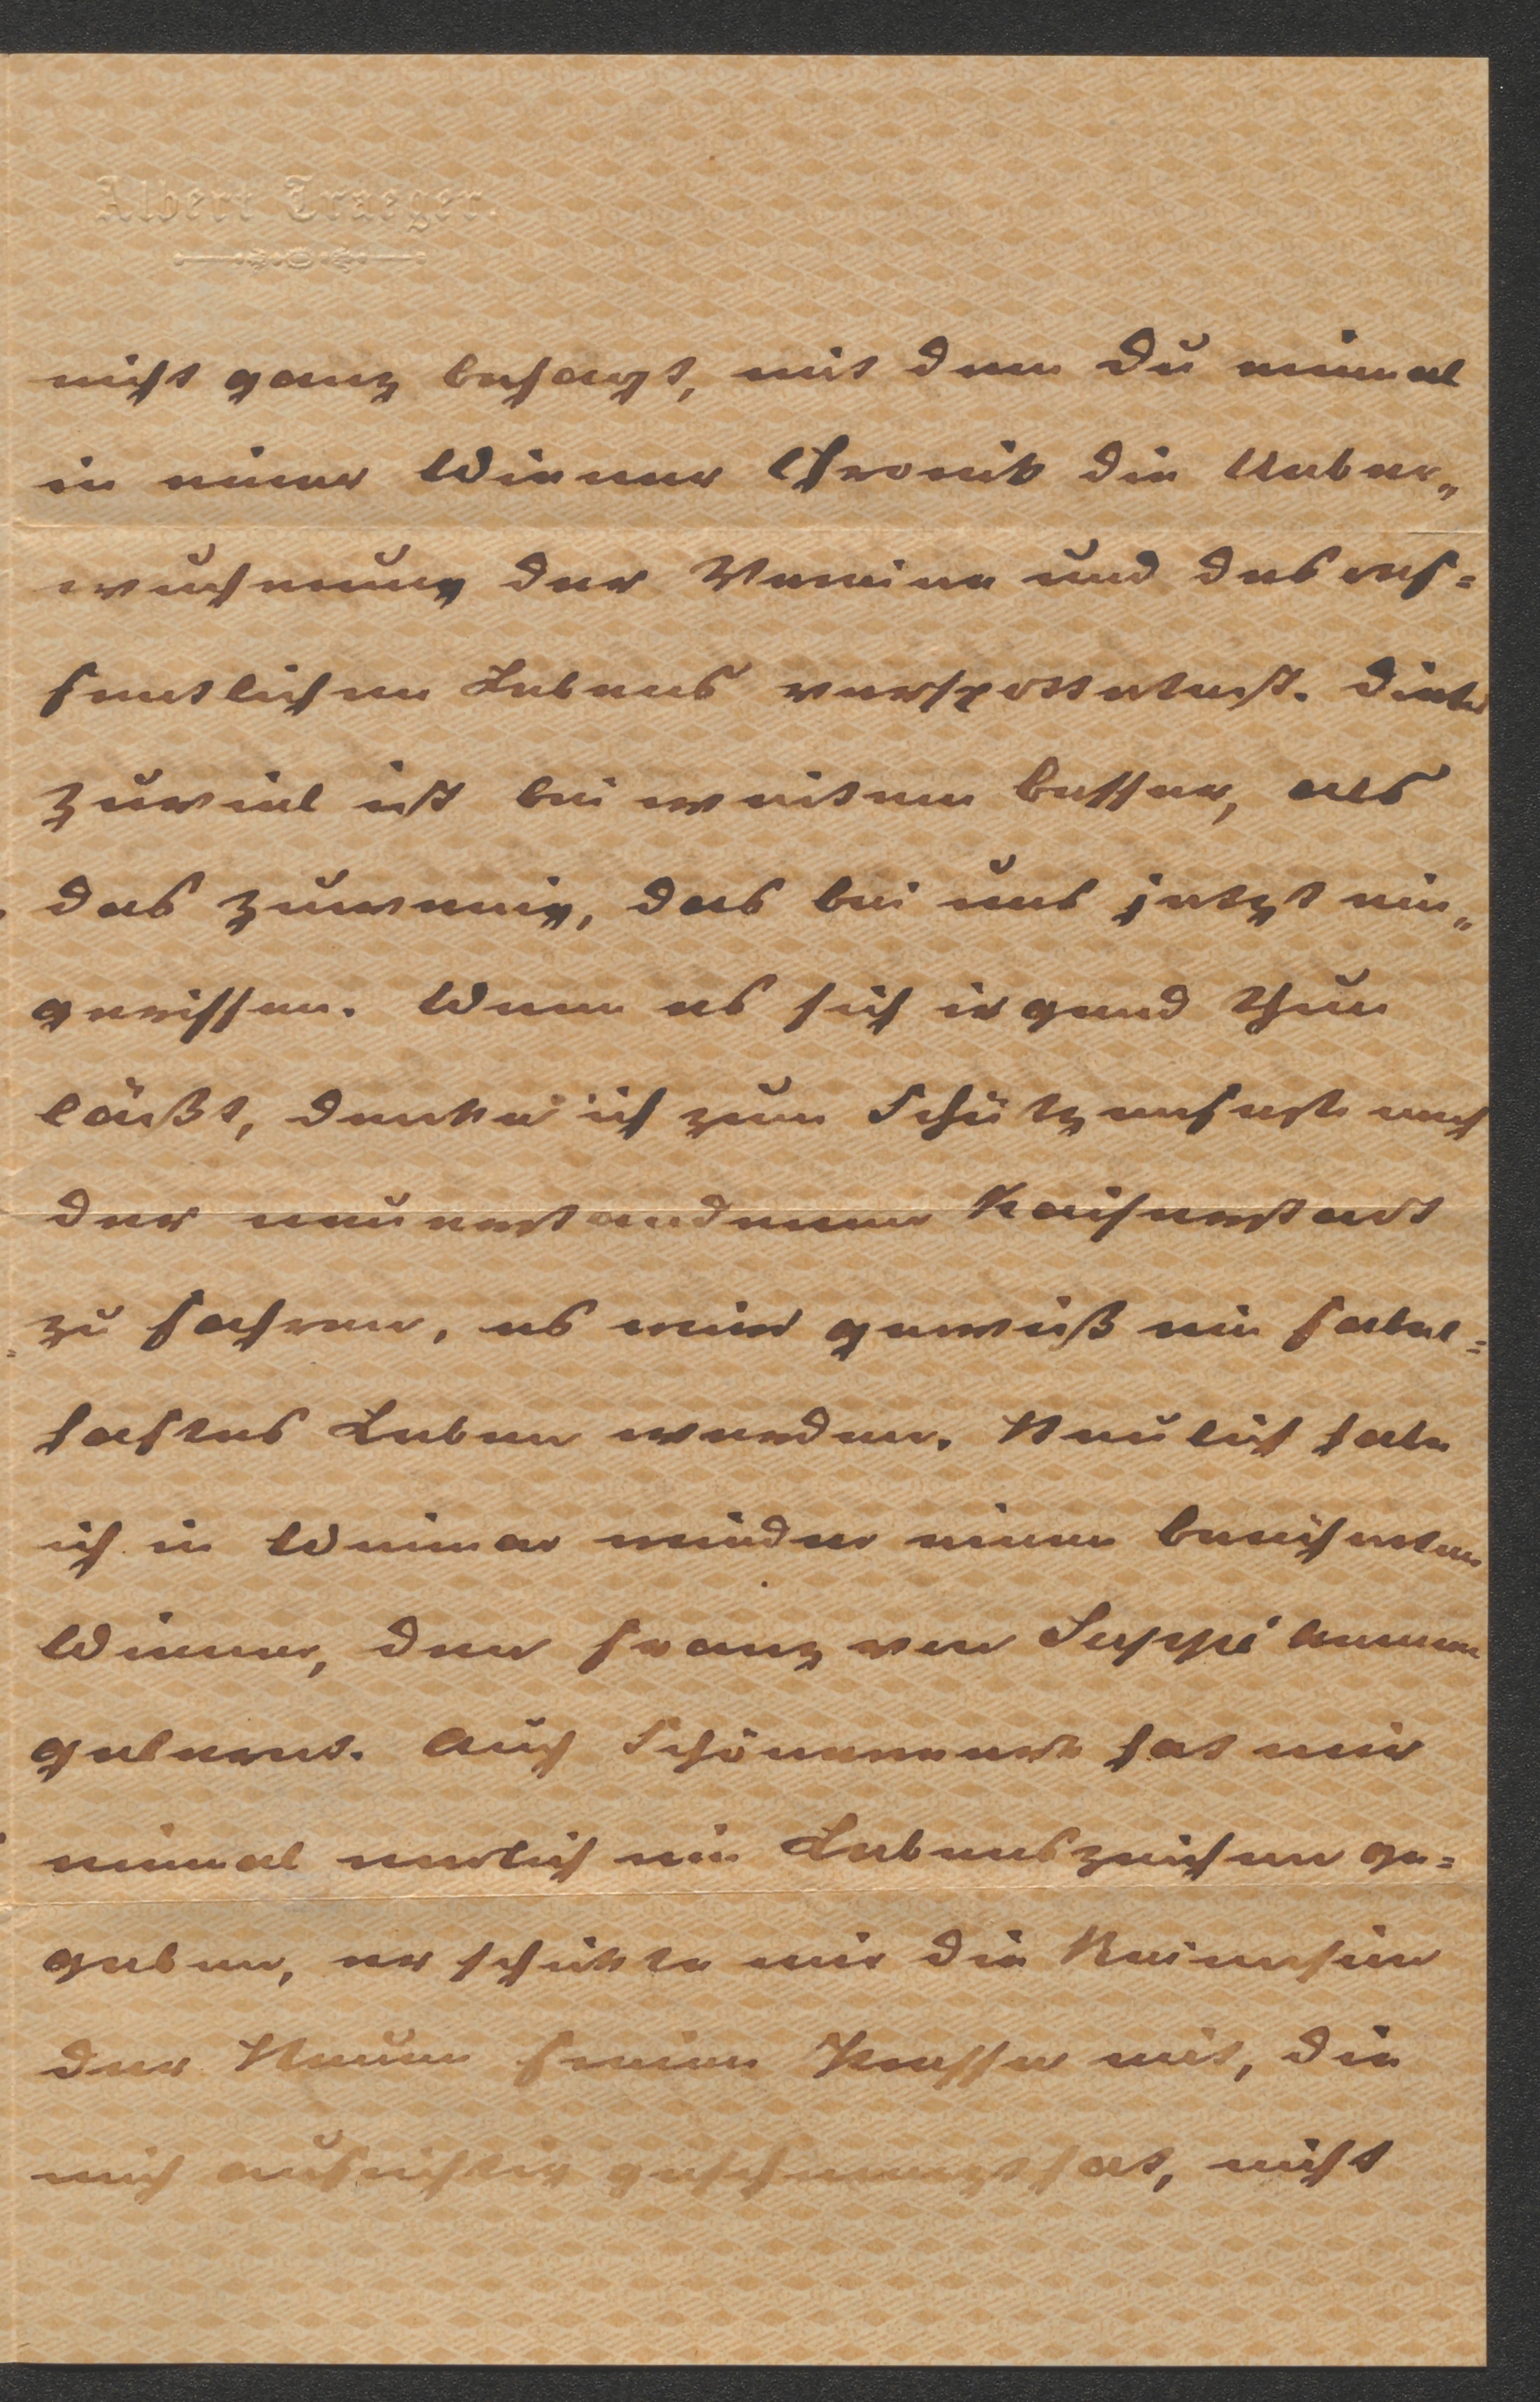 Albert Traeger.
nicht ganz behagt, mit dem Du einmal
in einer Wiener Chronik die Ueber„
wucherung der Vereine und des oef=
fentlichen Lebens verspottetest. Dieses
zuviel ist bei weitem besser, als
das zuwenig, das bei uns jetzt ein„
gerissen. Wenn es sich irgend thun
läßt, denke ich zum Schützenfeste nach
der neuerstandenen Kaiserstadt
zu fahren, es wird gewiß ein fabel=
haftes Leben werden. Neulich habe
ich in Weimar wieder einen berühmten
Wiener, den Franz von Suppé kennen
gelernt. Auch hat mir
einmal endlich ein Lebenszeichen ge=
geben, er schickte mir die
der Neuen freien Presse mit, die
mich aufrichtig geschmerzt hat, nicht